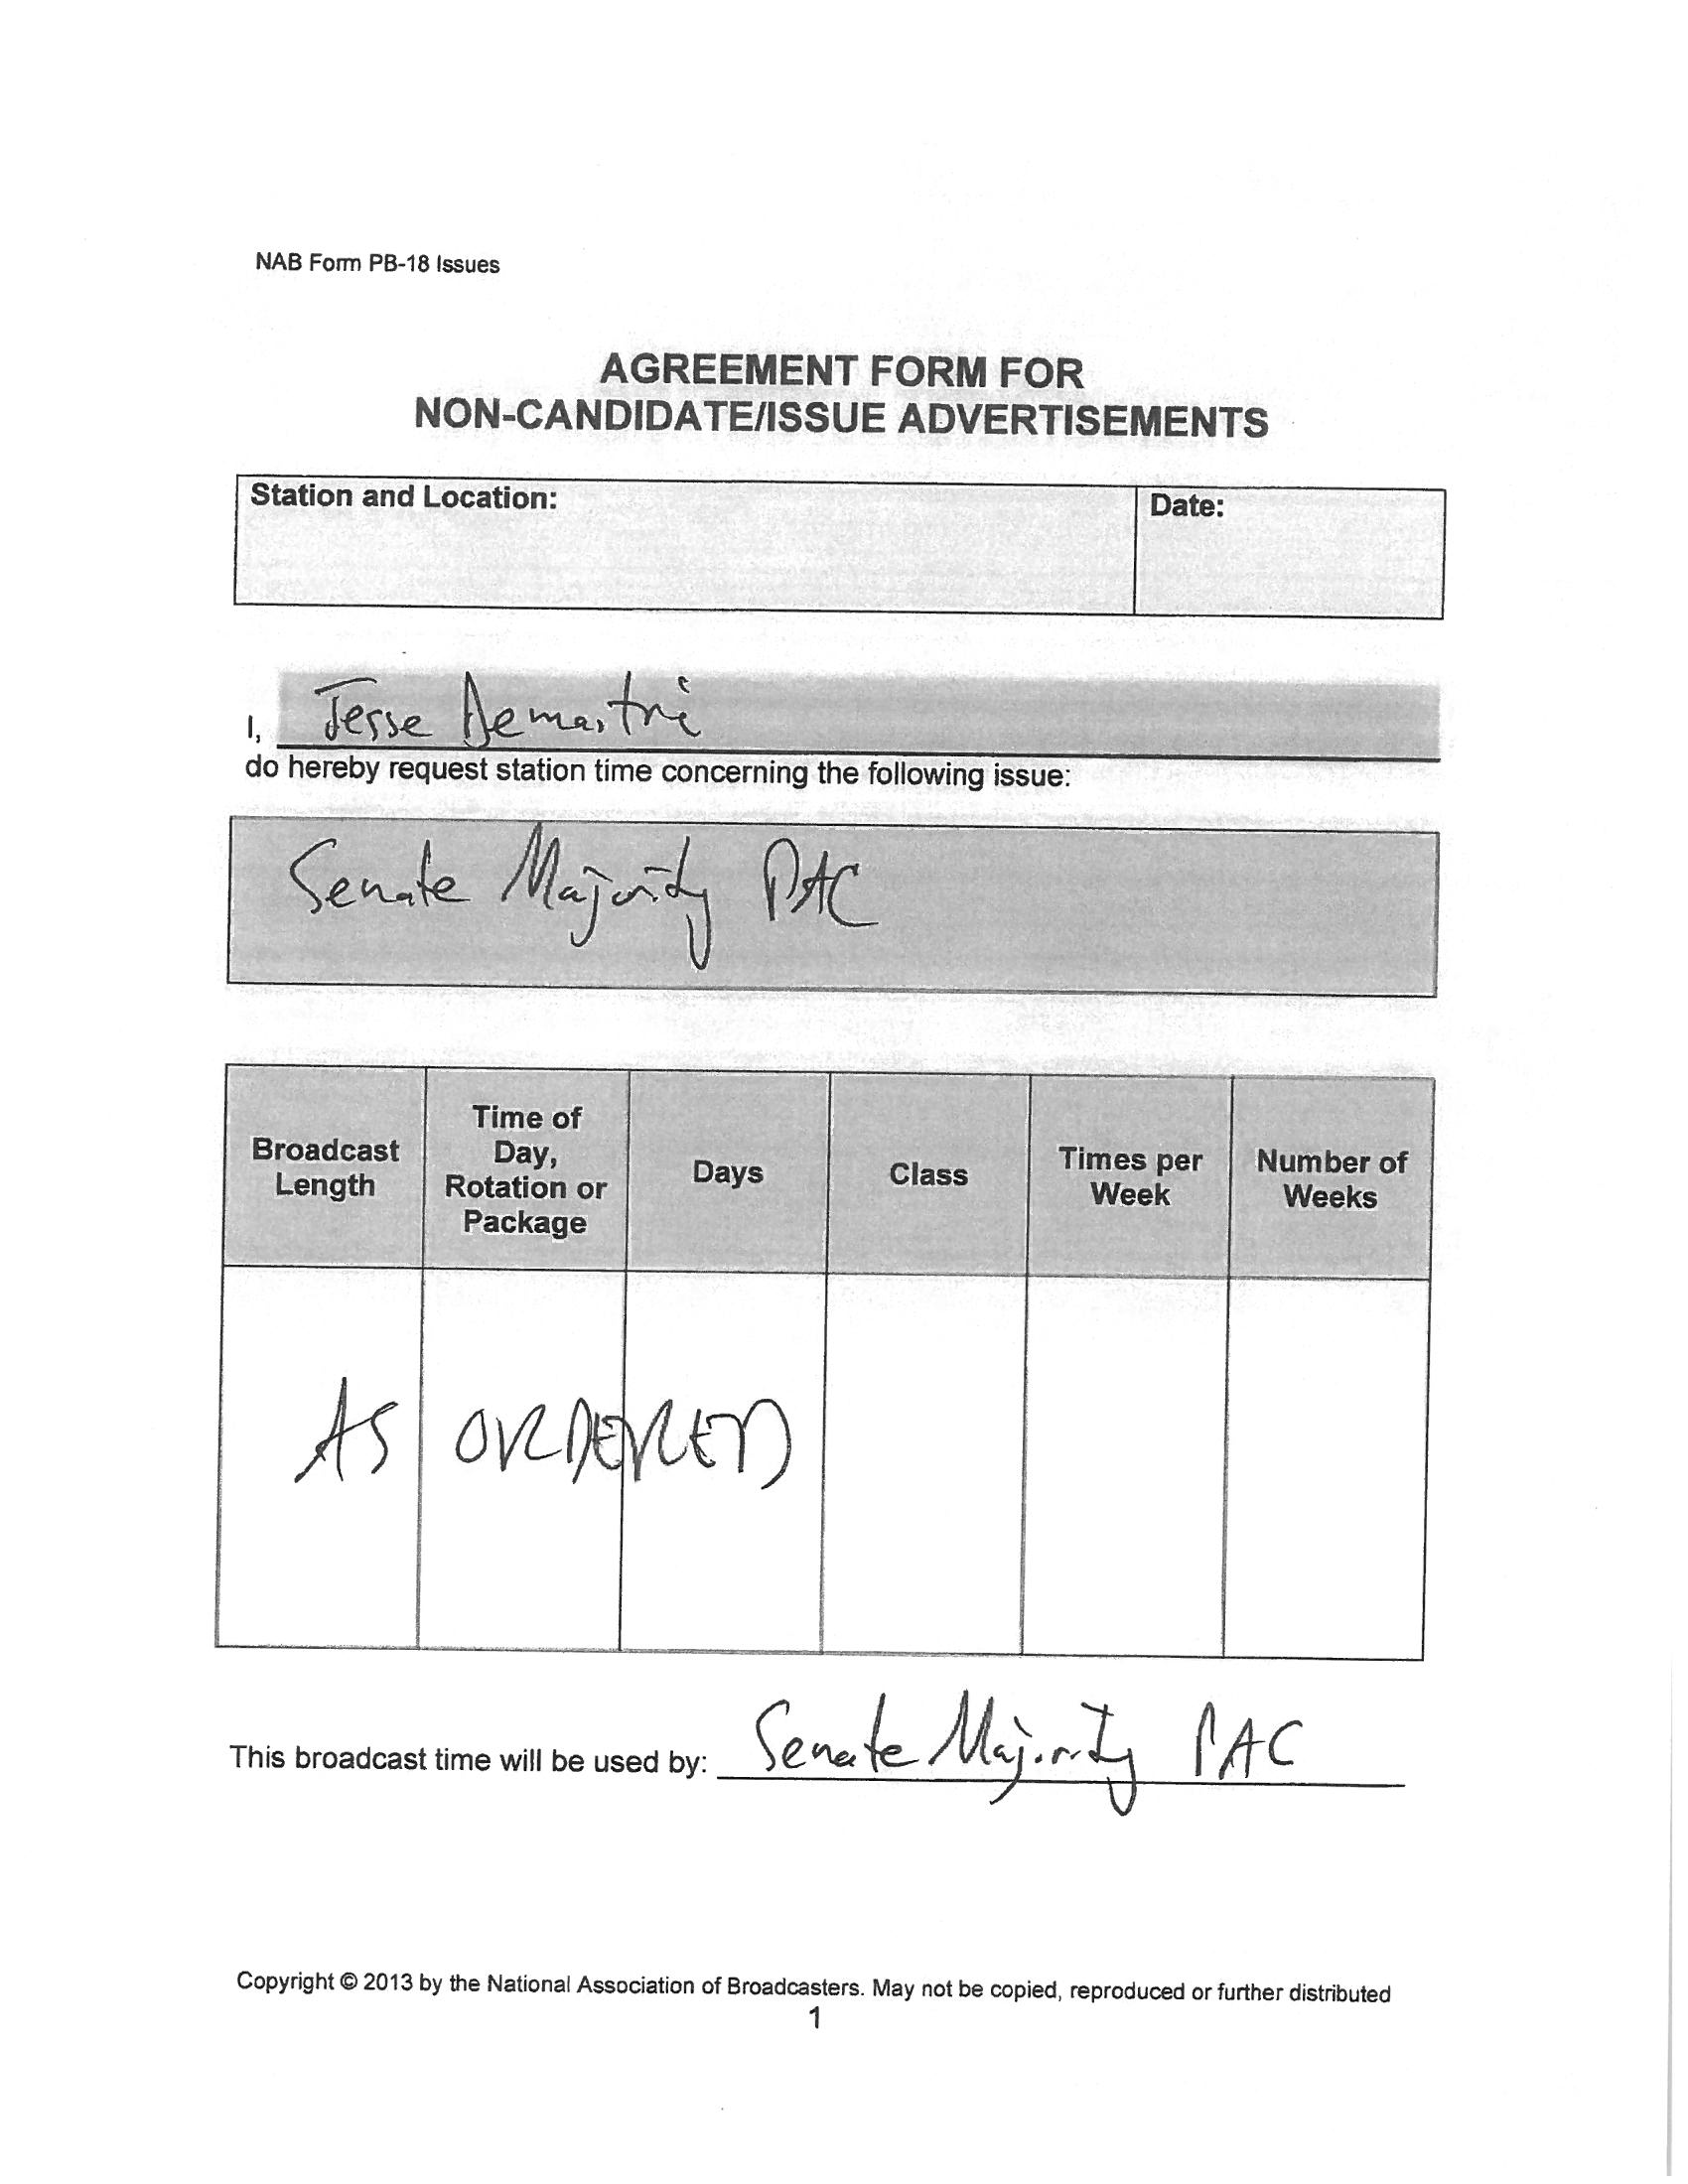 NAB Form PB-18 Issues
AGREEMENT FORM FOR
NON-CANDIDATE/ISSUE ADVERTISEMENTS
Station and Location:
Date:
I, Jesse Demastri
do hereby request station time concerning the following issue:
Senate Majority PAC
Broadcast
Length
Time of
Day,
Rotation or
Package
Days
Class
Times per
Week
Number of
Weeks
AS ORDERED
This broadcast time will be used by: Senate Majority PAC
Copyright © 2013 by the National Association of Broadcasters. May not be copied, reproduced or further distributed
1